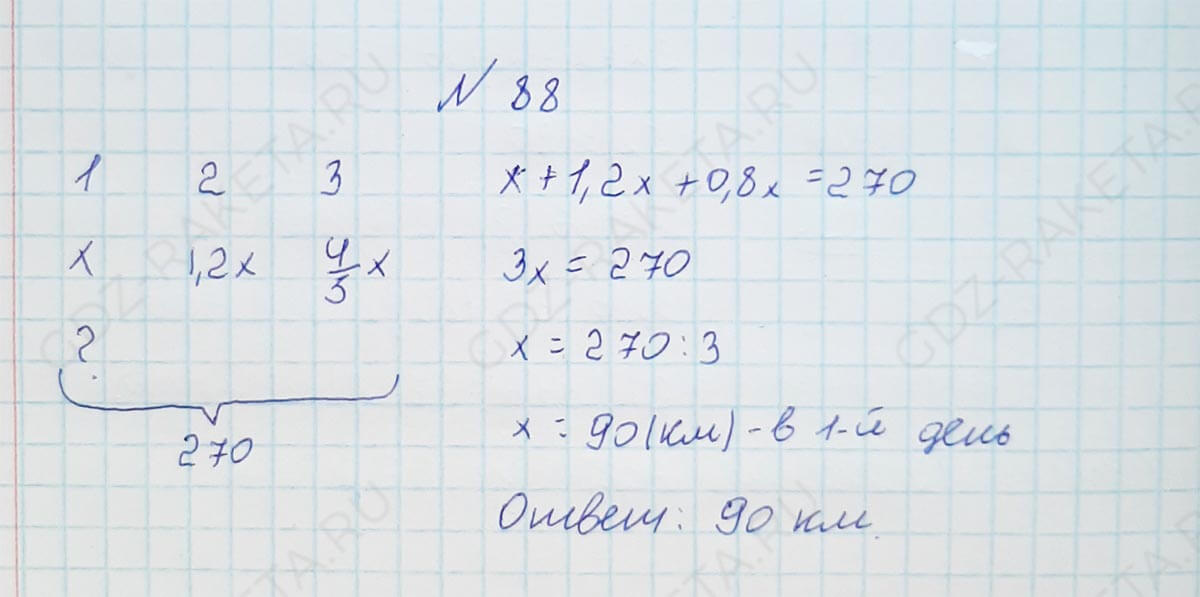 N 88
1 2 3
x 1,2x 4/5 x
?
270
x + 1,2x + 0,8x = 270
3x = 270
x = 270 : 3
x = 90 (км) - в 1-й день
Ответ: 90 км.
GDZ-RAKETA.RU
GDZ-RAKETA.RU
GDZ-RAKETA.RU